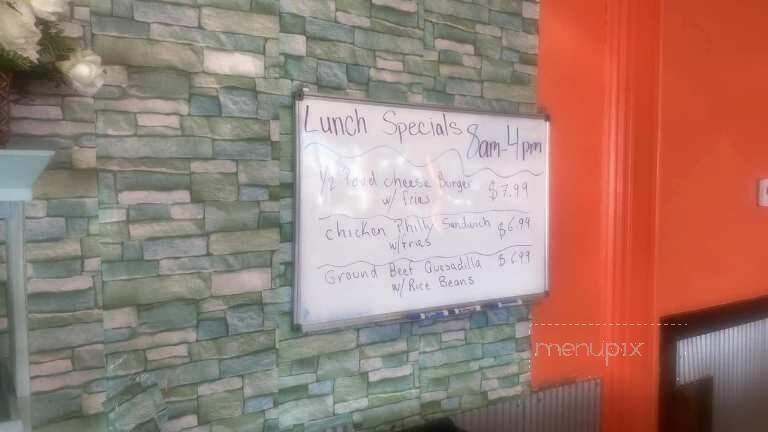 Lunch Specials 8am-4pm
1/2 Pound cheese Burger $7.99
w/ fries
chicken Philly Sandwich $6.99
w/fries
Ground Beef Quesadilla $6.99
w/Rice Beans
menupix